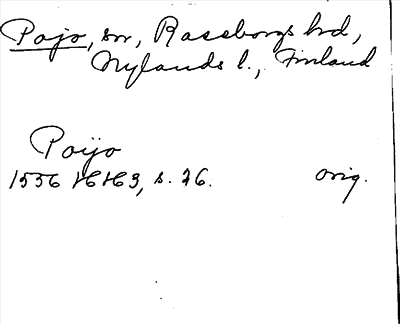 Pojo, sn, Raseborgs hd,
Nylands l., Finland
Poijo
1556 HH 3, s. 76. orig.